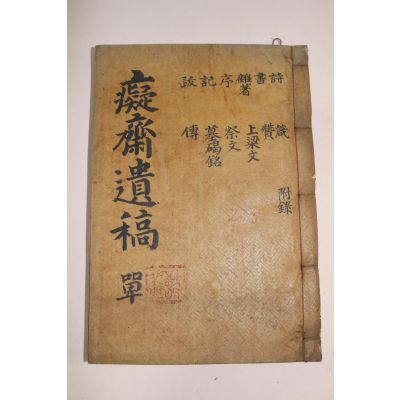 癡齋遺稿 單
詩 書 雜著 序 記 跋
箴 贊 上梁文 祭文 墓碣銘 傳
附錄